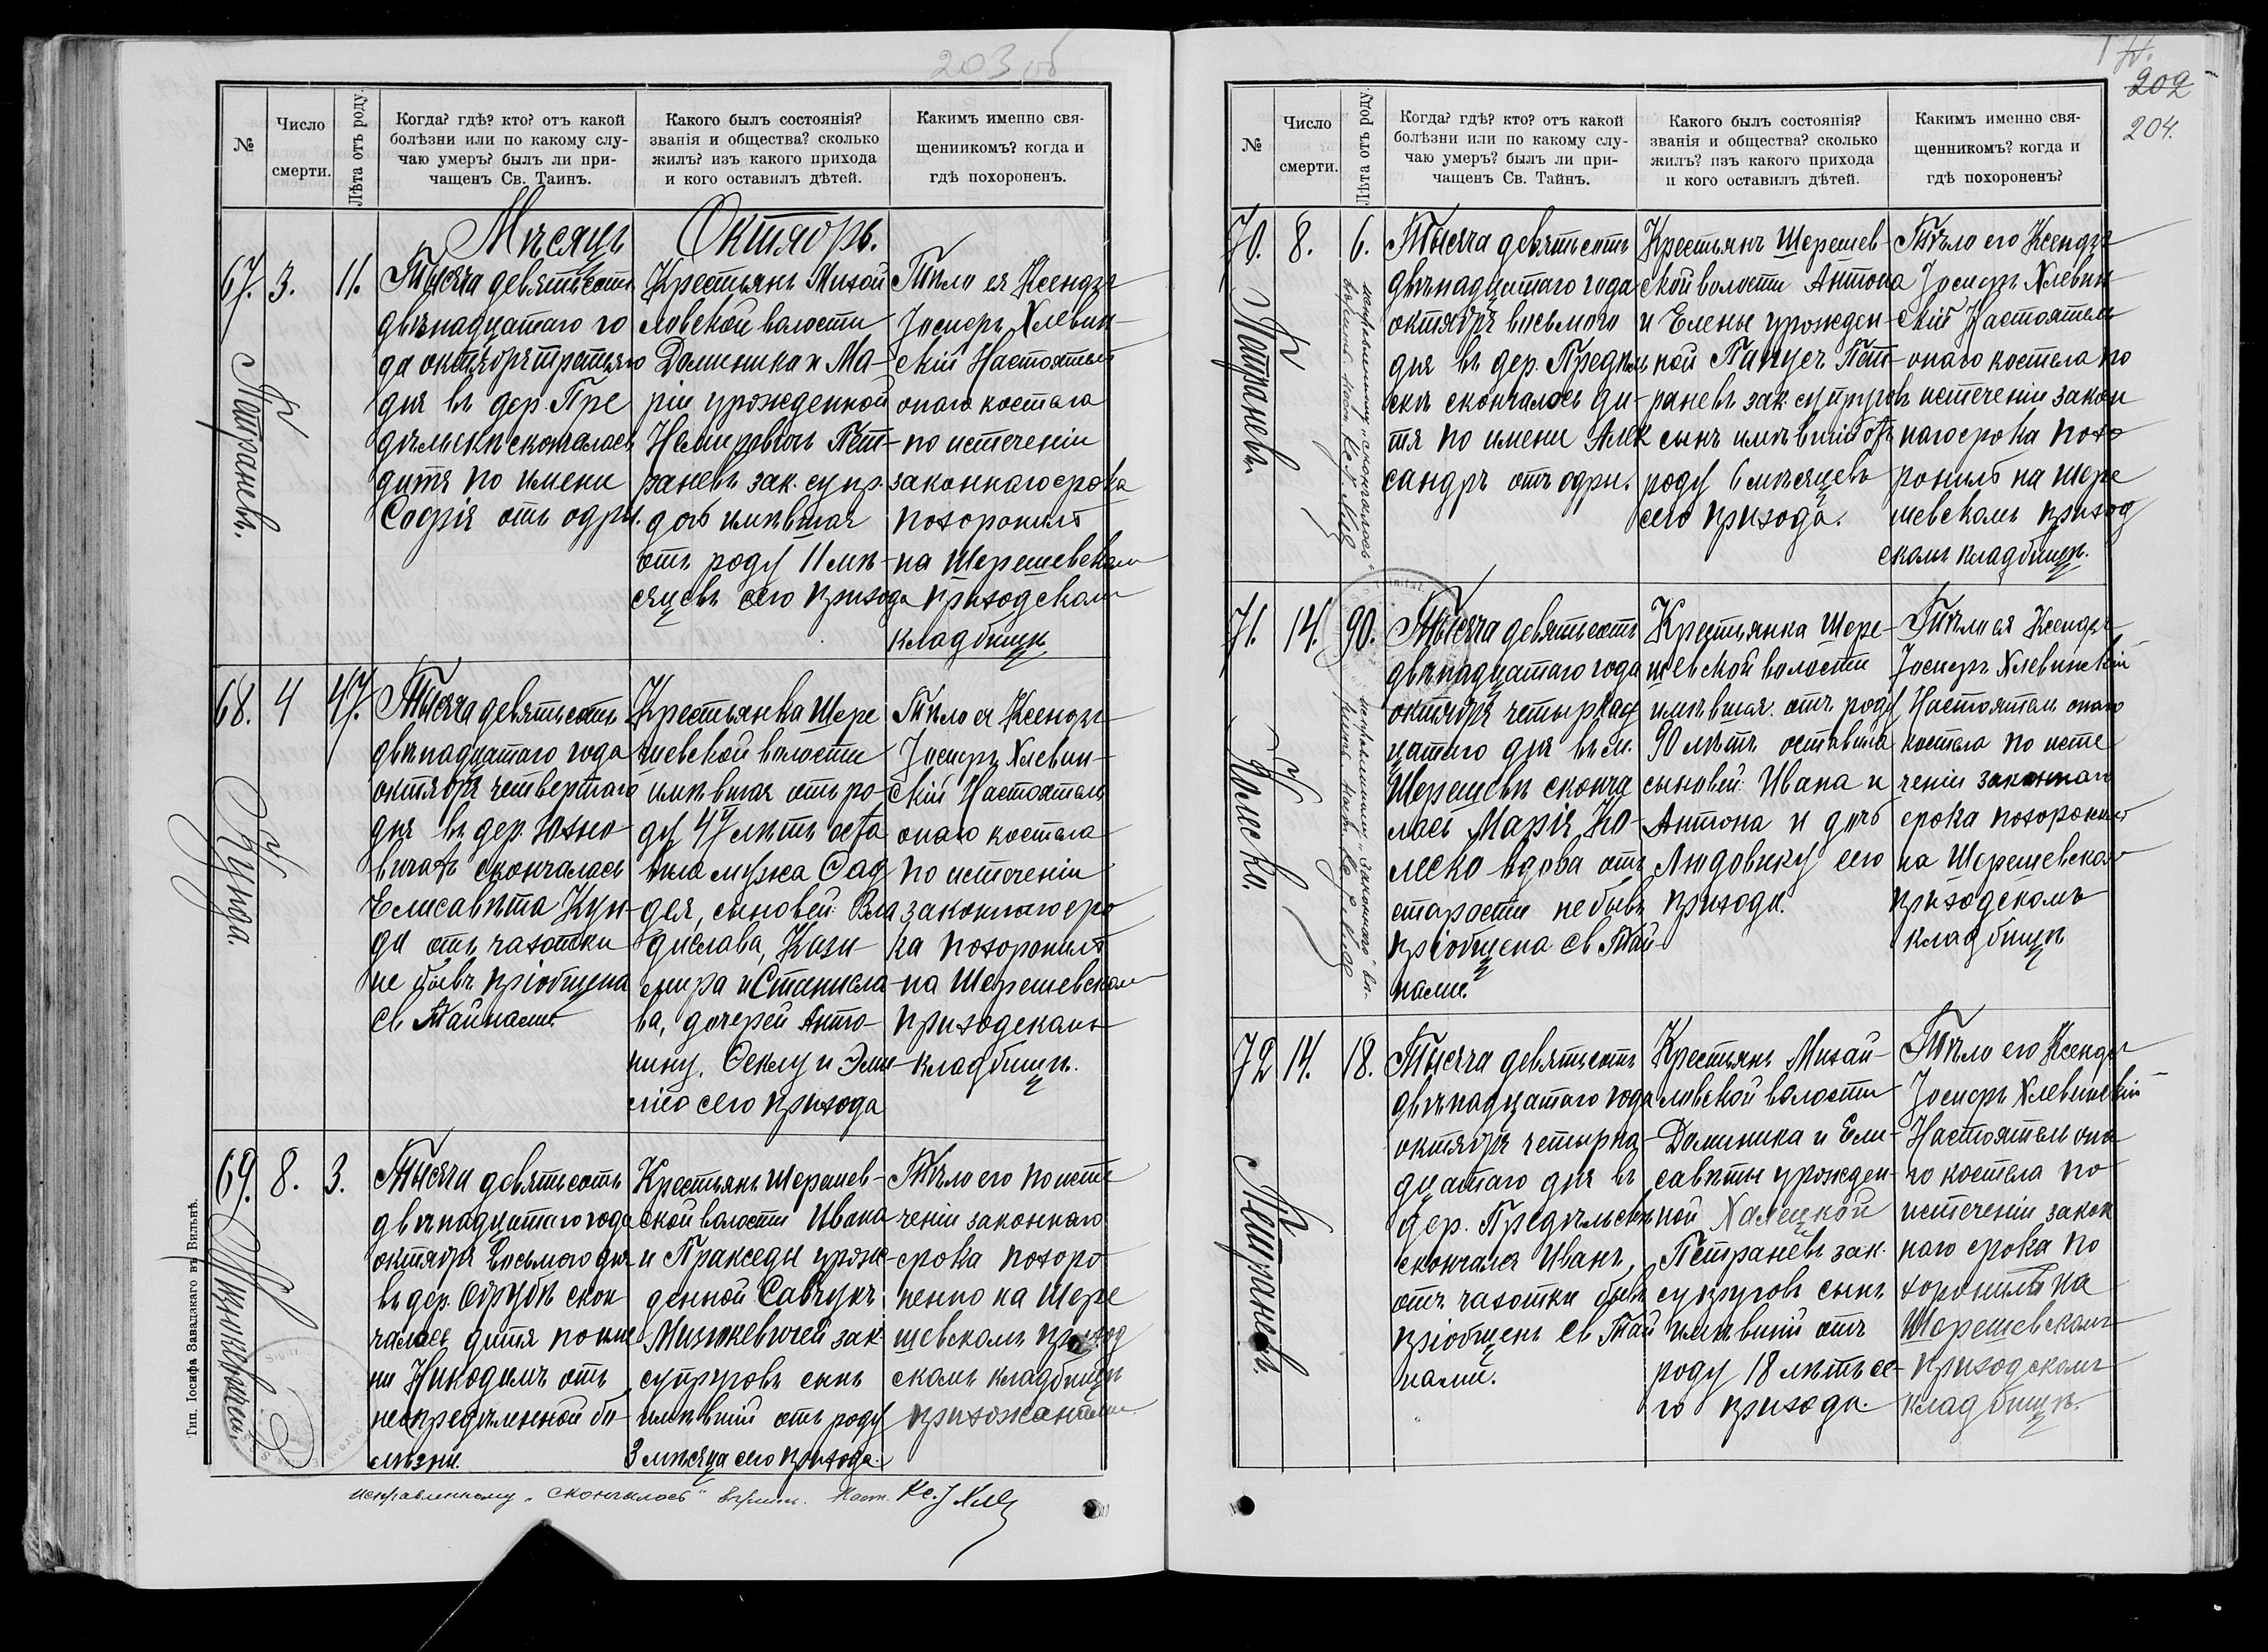 203 об
№
Число
смерти.
Лѣта отъ роду.
Когда? гдѣ? кто? отъ какой
болѣзни или по какому слу-
чаю умеръ? былъ ли при-
чащенъ Св. Таинъ.
Какого былъ состоянія?
званія и общества? сколько
жилъ? изъ какого прихода
и кого оставилъ дѣтей.
Какимъ именно свя-
щенникомъ? когда и
гдѣ похороненъ.
Мѣсяцъ Октябрь.
67. 3. 11.
Петраневъ.
Тысяча девятьсотъ
двѣнадцатаго го
да октября третьяго
дня въ дер. Пре
дѣльскѣ скончалось
дитя по имени
Софія отъ одры.
Крестьянъ Михай
ловской волости
Доминика и Ма-
ріи урожденной
Немировичъ Пет-
раневъ зак. супр.
дочь имѣвшая
отъ роду 11 мѣ-
сяцевъ сего прихода
Тѣло ея Ксендзъ
Іосифъ Хлевин-
скій Настоятель
онаго костела
по истеченіи
законнаго срока
похоронилъ
на Шерешевскомъ
приходскомъ
кладбищѣ
68. 4 47.
Кунда.
Тысяча девятьсотъ
двѣнадцатаго года
октября четвертаго
дня въ дер. Юхно
вичахъ скончалась
Елисавѣта Кун-
да отъ чахотки
не бывъ пріобщена
Св. Тайнами
Крестьянка Шере
шевской волости
имѣвшая отъ ро-
ду 47 лѣтъ оста
вила мужа Фад
дея, сыновей: Вла
дислава, Кази
мира и Станисла
ва, дочерей Анто-
нину, Феклу и Эми
лію сего прихода
Тѣло ея Ксендзъ
Іосифъ Хлевин-
скій Настоятель
онаго костела
по истеченіи
законнаго сро
ка похоронилъ
на Шерешевскомъ
приходскомъ
кладбищѣ.
69. 8. 3.
Тысяча девятьсотъ
двѣнадцатаго года
октября восьмого дня
въ дер. Обрубѣ скон
чалось дитя по име
ни Никодимъ отъ
неопредѣленной бо
лѣзни.
Крестьянъ Шерешев-
ской волости Ивана
и Пракседы урож-
денной Савчукъ
Мизюкевичей зак
супруговъ сынъ
имѣвшій отъ роду
3 мѣсяца сего прихода.
Тѣло его по исте
ченіи законнаго
срока похоро
нено на Шере
шевскомъ приход
скомъ кладбищѣ
прихожанами
исправленному „скончалось" вѣрить. Наст. Кс. І Хлев
Тип. Іосифа Завадзкаго въ Вильнѣ.
202
204.
№
Число
смерти.
Лѣта отъ роду.
Когда? гдѣ? кто? отъ какой
болѣзни или по какому слу-
чаю умеръ? былъ ли при-
чащенъ Св. Тайнъ.
Какого былъ состоянія?
званія и общества? сколько
жилъ? изъ какого прихода
и кого оставилъ дѣтей.
Какимъ именно свя-
щенникомъ? когда и
гдѣ похороненъ?
70. 8. 6.
Петраневъ.
исправленному „скончалось"
Тысяча девятьсотъ
двѣнадцатаго года
октября восьмого
дня въ дер. Предѣль
скѣ скончалось ди-
тя по имени Алек
сандръ отъ одры.
Крестьянъ Шерешев-
ской волости Антона
и Елены урожден-
ной Панусь Пет-
раневъ зак. супруговъ
сынъ имѣвшій отъ
роду 6 мѣсяцевъ
сего прихода.
Тѣло его Ксендзъ
Іосифъ Хлевин-
скій Настоятель
онаго костела по
истеченіи закон
наго срока похо
ронилъ на Шере
шевскомъ приход
скомъ кладбищѣ.
71. 14. 90.
Колеско.
Тысяча девятьсотъ
двѣнадцатаго года
октября четырнад
цатаго дня въ м.
Шерешевѣ сконча
лась Марія Ко-
леско вдова отъ
старости не бывъ
пріобщена Св Тай-
нами.
Крестьянка Шере-
шевской волости
имѣвшая отъ роду
90 лѣтъ оставила
сыновей: Ивана и
Антона и дочь
Людовику сего
прихода.
Тѣло ея Ксендзъ
Іосифъ Хлевинскій
Настоятель онаго
костела по исте
ченіи законнаго
срока похоронилъ
на Шерешевскомъ
приходскомъ
кладбищѣ
72 14. 18.
Петраневъ.
Тысяча девятьсотъ
двѣнадцатаго года
октября четырна-
дцатаго дня въ
дер. Предѣльскѣ
скончался Иванъ,
отъ чахотки бывъ
пріобщенъ Св Тай
нами.
Крестьянъ Михай-
ловской волости
Доминика и Ели-
савѣты урожден-
ной Халецкой
Петраневъ зак.
супруговъ сынъ
имѣвшій отъ
роду 18 лѣтъ се-
го прихода.
Тѣло его Ксендзъ
Іосифъ Хлевинскій
Настоятель она
го костела по
истеченіи закон
наго срока по
хоронилъ на
Шерешевскомъ
приходскомъ
кладбищѣ.